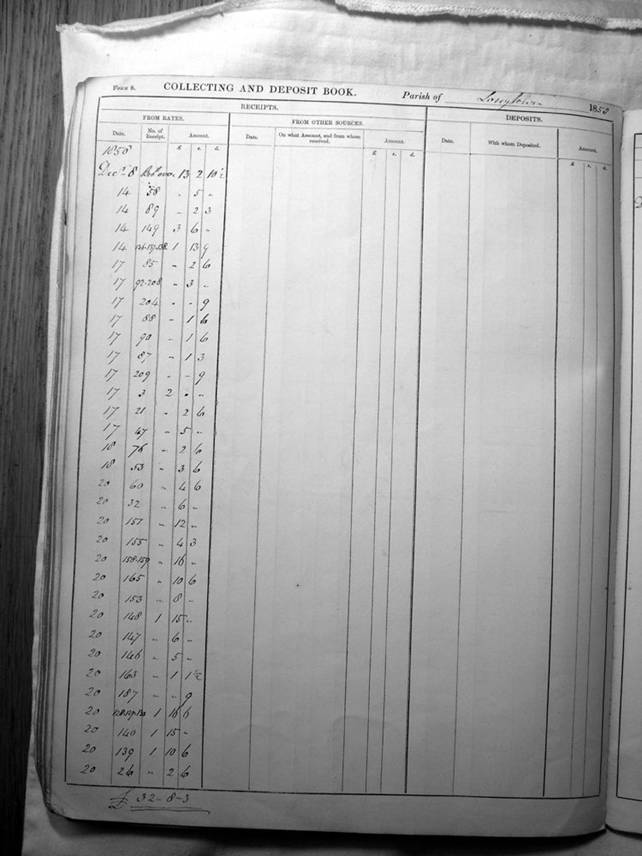 FORM 8. COLLECTING AND DEPOSIT BOOK. Parish of Longtown 1858
RECEIPTS. DEPOSITS.
FROM RATES. FROM OTHER SOURCES.
Date. No. of Receipt. Amount. Date. On what Account, and from whom received. Amount. Date. With whom Deposited. Amount.
£ s. d. £ s. d. £ s. d.
1858
Decr 8 13 2 10½
14 58 - 5 -
14 89 - 2 3
14 149 3 6 -
14 1 13 9
17 85 - 2 6
17 92-208 - 3 -
17 204 - - 9
17 88 - 1 6
17 90 - 1 6
17 87 - 1 3
17 209 - - 9
17 3 2 - -
17 21 - 2 6
17 47 - 5 -
18 76 - 2 6
18 53 - 3 6
20 60 - 4 6
20 32 - 6 -
20 157 - 12 -
20 155 - 4 3
20 158-159 - 16 -
20 165 - 10 6
20 153 - 8 -
20 148 1 15 -
20 147 - 6 -
20 146 - 5 -
20 163 - 1 1½
20 187 - - 9
20 1 16 6
20 140 1 15 -
20 139 1 10 6
20 26 - 2 6
£ 32-8-3